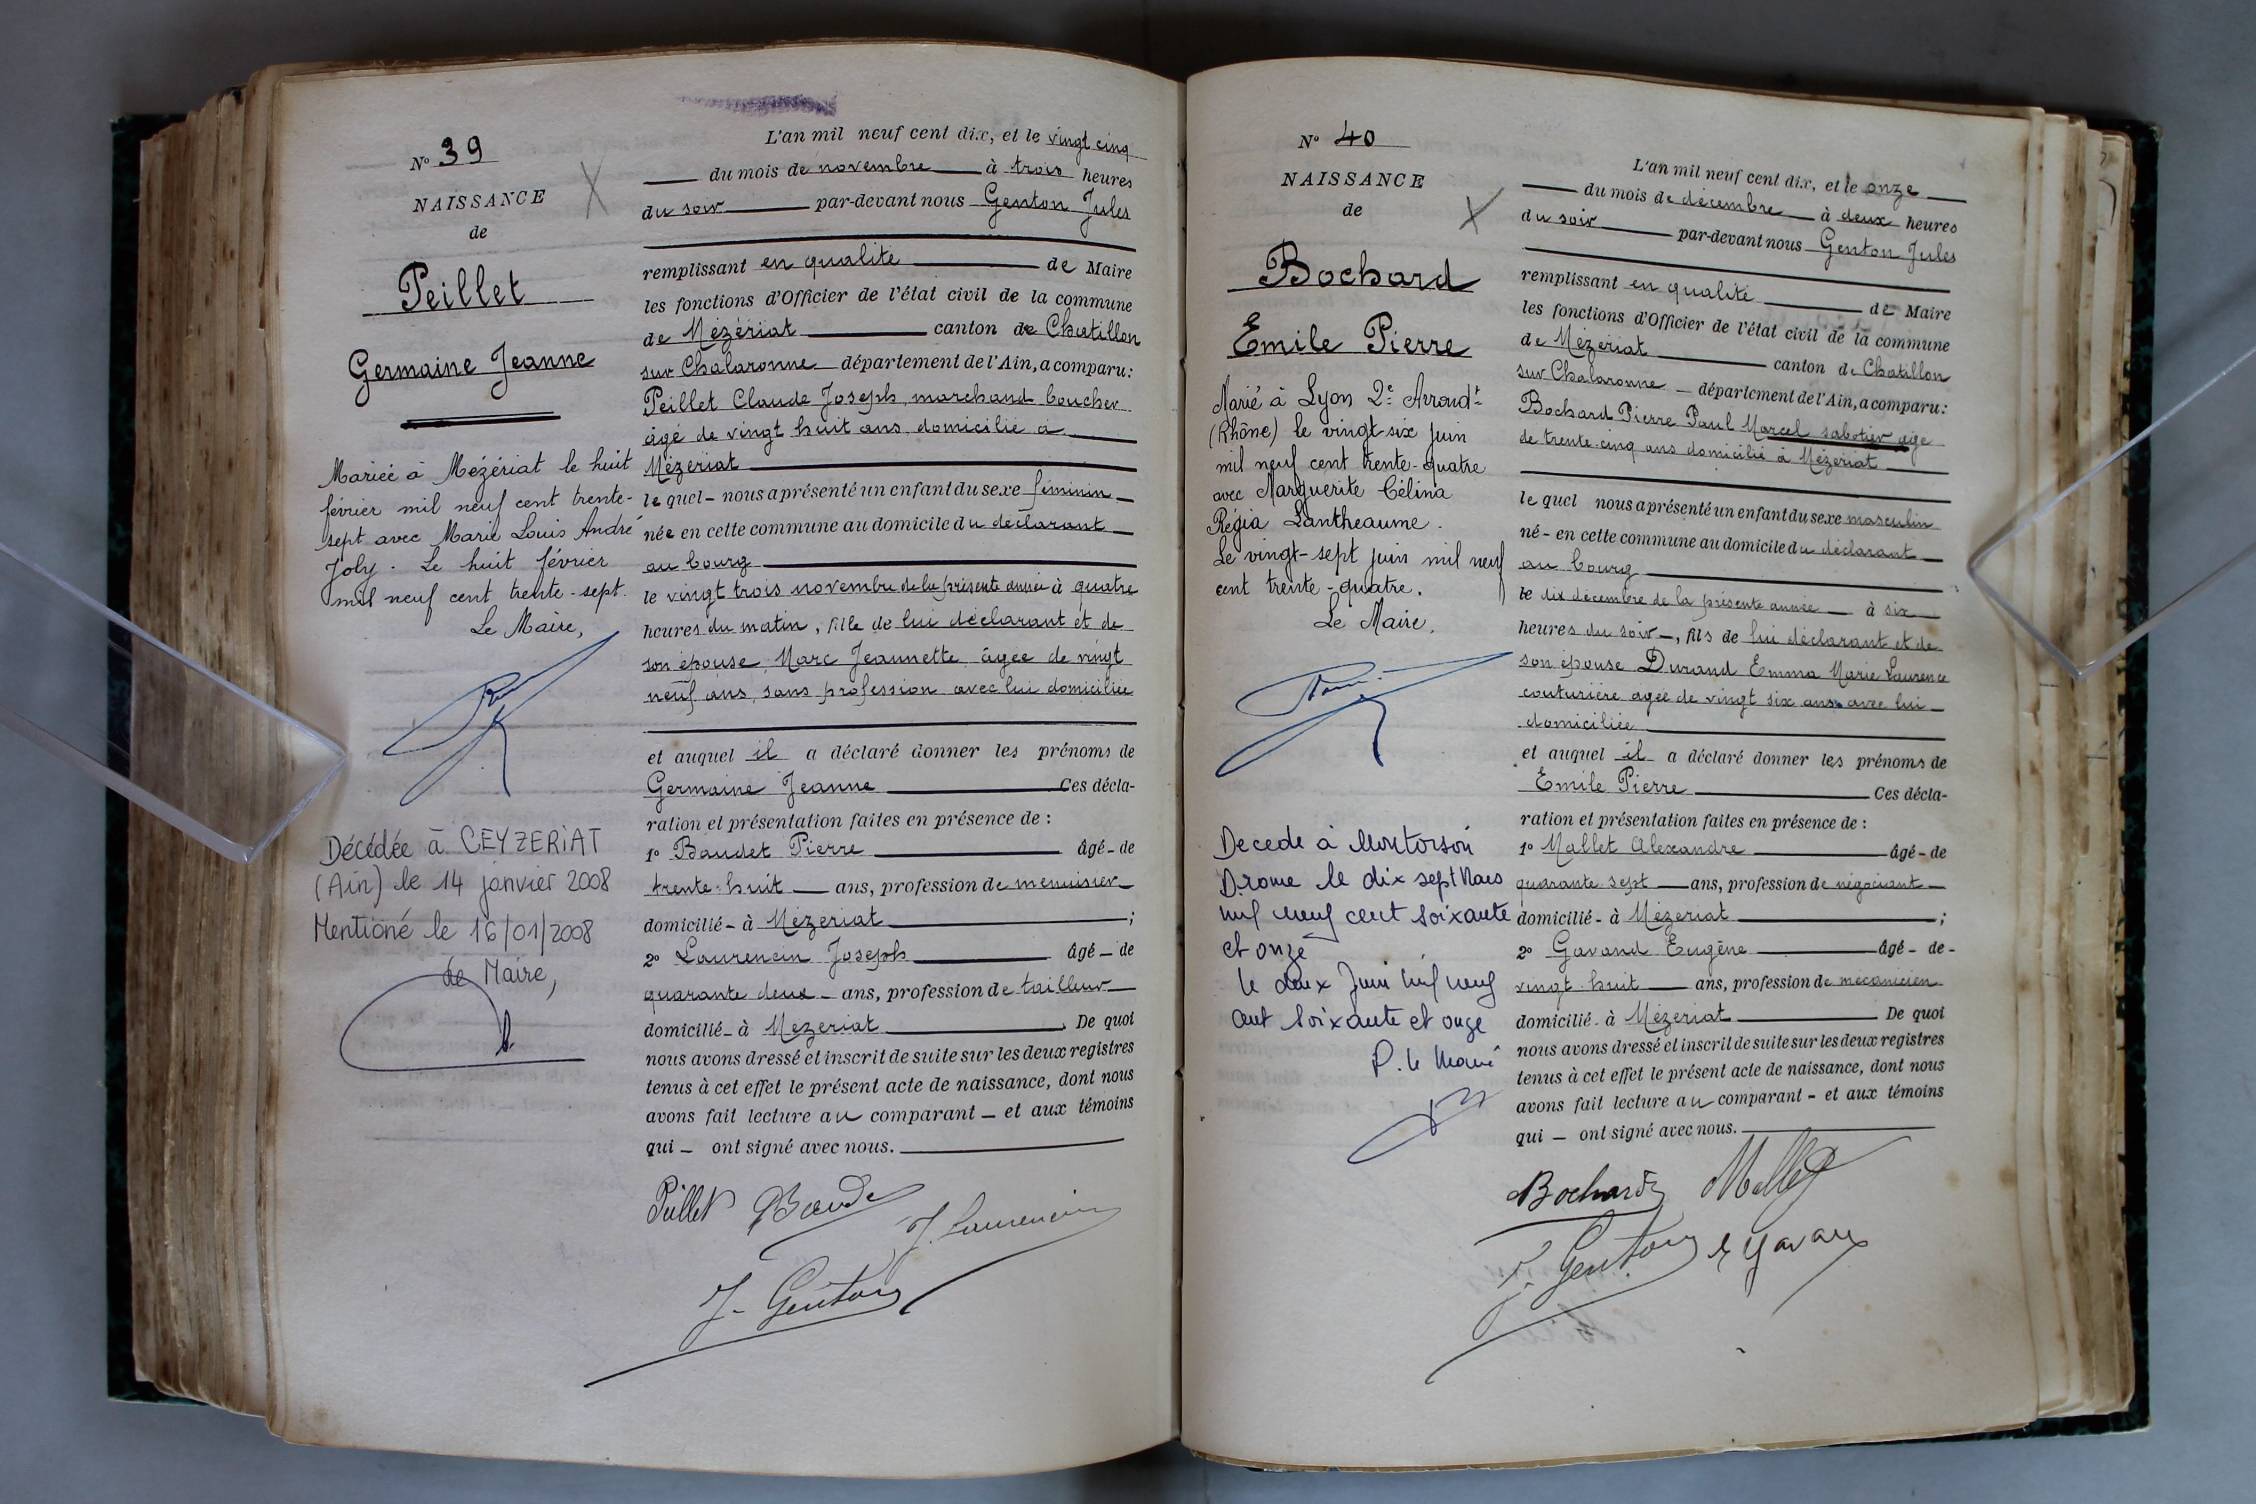 N° 39
NAISSANCE
de
Peillet
Germaine Jeanne
Mariée à Mézériat le huit
février mil neuf cent trente-
sept avec Marie Louis André
Joly. Le huit février
mil neuf cent trente-sept.
Le Maire,
Décédée à CEYZERIAT
(Ain) le 14 janvier 2008
Mentioné le 16/01/2008
Le Maire,
L'an mil neuf cent dix, et le vingt cinq
du mois de novembre à trois heures
du soir par-devant nous Genton Jules
remplissant en qualité de Maire
les fonctions d'Officier de l'état civil de la commune
de Mézériat canton de Chatillon
sur Chalaronne département de l'Ain, a comparu:
Peillet Claude Joseph, marchand boucher
âgé de vingt huit ans, domicilié à
Mézeriat
lequel - nous a présenté un enfant du sexe féminin
née en cette commune au domicile du déclarant
au bourg
le vingt trois novembre de la présente année à quatre
heures du matin, fille de lui déclarant et de
son épouse Marc Jeannette âgée de vingt
neuf ans, sans profession avec lui domiciliée
et auquel il a déclaré donner les prénoms de
Germaine Jeanne Ces décla-
ration et présentation faites en présence de :
1° Baudet Pierre âgé - de
trente-huit ans, profession de menuisier
domicilié - à Mézeriat ;
2° Laurencin Joseph âgé - de
quarante deux - ans, profession de tailleur
domicilié - à Mézeriat . De quoi
nous avons dressé et inscrit de suite sur les deux registres
tenus à cet effet le présent acte de naissance, dont nous
avons fait lecture au comparant - et aux témoins
qui - ont signé avec nous.
Peillet Baudet
J. Laurencin
J. Genton
N° 40
NAISSANCE
de
Bochard
Emile Pierre
Marié à Lyon 2e Arrondt
(Rhône) le vingt-six juin
mil neuf cent trente-quatre
avec Marguerite Célina
Régia Lantheaume.
Le vingt-sept juin mil neuf
cent trente-quatre.
Le Maire,
Decede à Montoison
Drome le dix sept Mars
mil neuf cent soixante
et onze
le deux Juin mil neuf
cent soixante et onze
P. le Maire
L'an mil neuf cent dix, et le onze
du mois de décembre à deux heures
du soir par-devant nous Genton Jules
remplissant en qualité de Maire
les fonctions d'Officier de l'état civil de la commune
de Mézeriat canton de Chatillon
sur Chalaronne - département de l'Ain, a comparu:
Bochard Pierre Paul Marcel sabotier âgé
de trente-cinq ans domicilié à Mézeriat
lequel nous a présenté un enfant du sexe masculin
né - en cette commune au domicile du déclarant
au bourg
le dix décembre de la présente année à six
heures du soir -, fils de lui déclarant et de
son épouse Durand Emma Marie Laurence
couturière agée de vingt six ans avec lui
domiciliée
et auquel il a déclaré donner les prénoms de
Emile Pierre Ces décla-
ration et présentation faites en présence de :
1° Mallet Alexandre âgé - de
quarante sept ans, profession de négociant
domicilié - à Mézeriat ;
2° Gavand Eugène âgé - de -
vingt-huit ans, profession de mécanicien
domicilié - à Mézeriat De quoi
nous avons dressé et inscrit de suite sur les deux registres
tenus à cet effet le présent acte de naissance, dont nous
avons fait lecture au comparant - et aux témoins
qui - ont signé avec nous.
Bochard Mallet
J. Genton E Gavand